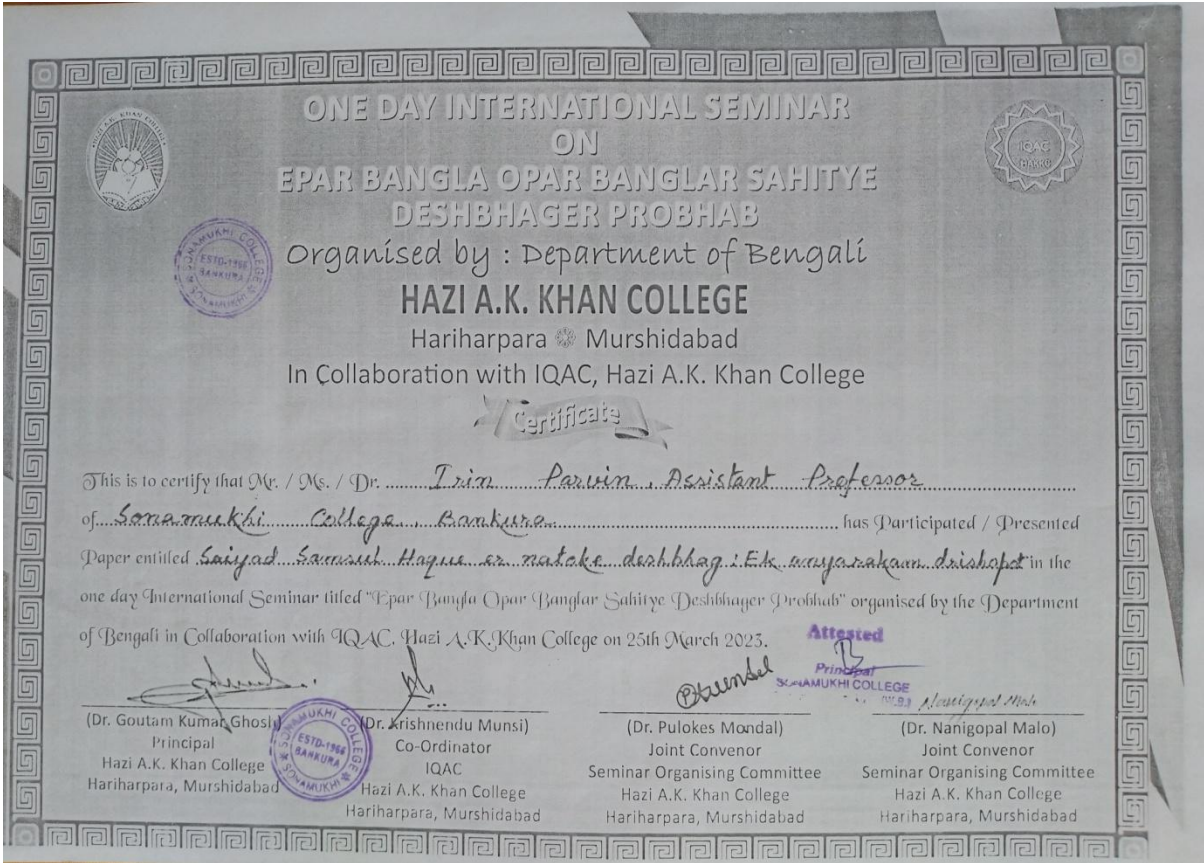 ONE DAY INTERNATIONAL SEMINAR
ON
EPAR BANGLA OPAR BANGLAR SAHITYE
DESHBHAGER PROBHAB
Organised by : Department of Bengali
HAZI A.K. KHAN COLLEGE
Hariharpara Murshidabad
In Collaboration with IQAC, Hazi A.K. Khan College
Certificate
HAZI A.K. KHAN COLLEGE
IQAC
HAKKC
SONAMUKHI COLLEGE
ESTD-1966
BANKURA
SONAMUKHI
This is to certify that Mr. / Ms. / Dr. Irin Parvin, Assistant Professor
of Sonamukhi College, Bankura has Participated / Presented
Paper entitled Saiyad Samsul Haque er natoke deshbhag : Ek anyarakam drishapot in the
one day International Seminar titled "Epar Bangla Opar Banglar Sahitye Deshbhager Probhab" organised by the Department
of Bengali in Collaboration with IQAC, Hazi A.K.Khan College on 25th March 2023.
Attested
Principal
SONAMUKHI COLLEGE
Nanigopal Malo
(Dr. Goutam Kumar Ghosh)
Principal
Hazi A.K. Khan College
Hariharpara, Murshidabad
SONAMUKHI COLLEGE
ESTD-1966
BANKURA
SONAMUKHI
(Dr. Krishnendu Munsi)
Co-Ordinator
IQAC
Hazi A.K. Khan College
Hariharpara, Murshidabad
(Dr. Pulokes Mondal)
Joint Convenor
Seminar Organising Committee
Hazi A.K. Khan College
Hariharpara, Murshidabad
(Dr. Nanigopal Malo)
Joint Convenor
Seminar Organising Committee
Hazi A.K. Khan College
Hariharpara, Murshidabad